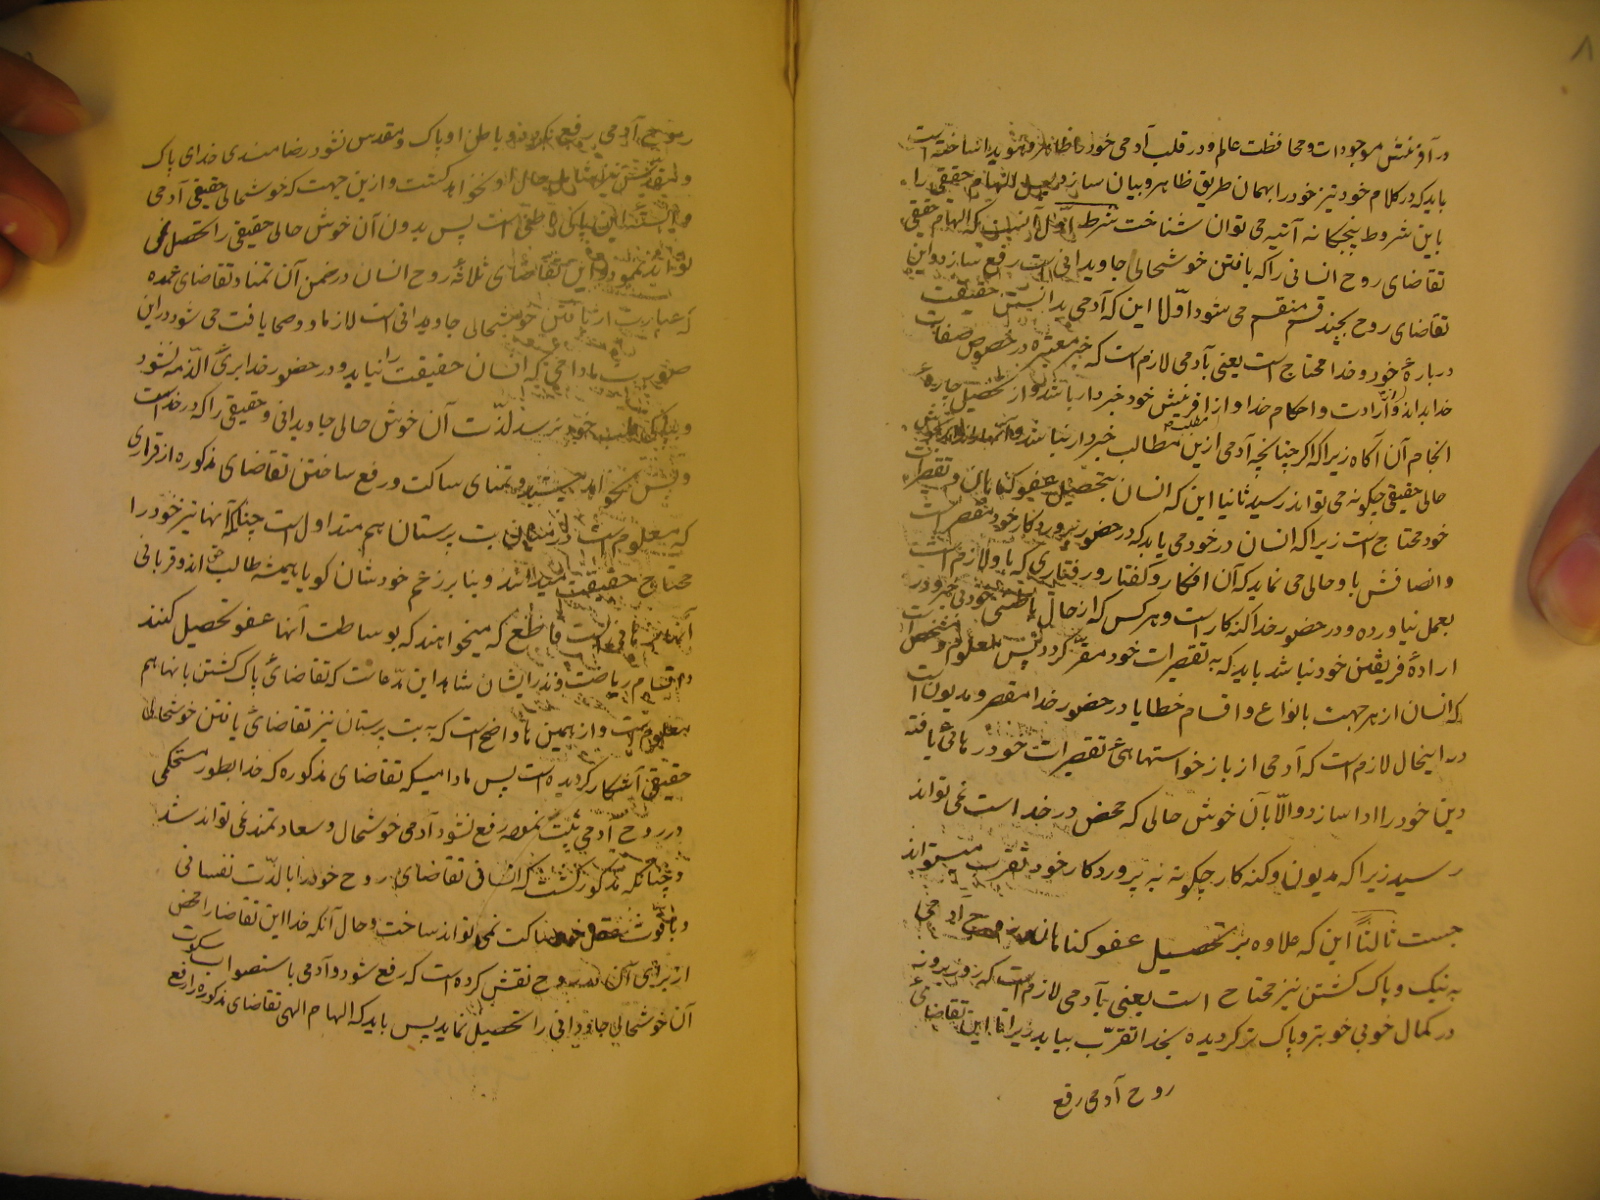 ۸
در آفرینش موجودات و محافظت عالم و در قلب آدمی خود را ظاهر و هویدا ساخته است
باید که در کلام خود نیز خود را بهمان طریق ظاهر و بیان سازد الهام حقیقی را
باین شروط پنجگانه آتیه می توان شناخت شرط اول آنست که الهام حقیقی
تقاضای روح انسانی را که یافتن خوشحالی جاویدانی است رفع سازد و این
تقاضای روح بچند قسم منقسم می شود اوّلا این که آدمی بدانستن حقیقت
دربارهٔ خود و خدا محتاج است یعنی بآدمی لازم است که خبر معتبره در خصوص صفات
خدا بداند و از ارادت و احکام خدا و از آفرینش خود خبردار باشد و از تحصیل چارهٔ
انجام آن آگاه زیرا که اگر چنانچه آدمی ازین مطالب خبردار نباشد و
حالی حقیقی چگونه می تواند رسید ثانیا این که انسان بتحصیل عفو گناهان و تقصیرات
خود محتاج است زیرا که انسان در خود می یابد که در حضور پروردگار خود مقصر است
و انصافش باو حالی می نماید که آن افکار و گفتار و رفتاری که باو لازم است
بعمل نیاورده و در حضور خدا گنه کار است و هر کس که از حال باطنی خود بی خبر و در
ارادهٔ فریفتن خود نباشد باید که به تقصیرات خود مقرّ گردد پس معلوم و مشخص است
که انسان از هر جهت بانواع و اقسام خطایا در حضور خدا مقصر و مدیون است
در اینحال لازم است که آدمی از بازخواستهای تقصیرات خود رهائی یافته
دین خود را ادا سازد و الّا بآن خوش حالی که محض در خدا است نمی تواند
رسید زیرا که مدیون و گنه کار چگونه به پروردگار خود تقرب میتواند
جست ثالثاً این که علاوه بر تحصیل عفو گناهان روح آدمی
به نیک و پاک گشتن نیز محتاج است یعنی بآدمی لازم است که روز بروز
در کمال خوبی خوبتر و پاک تر گردیده بخدا تقرّب بیابد زیرا تا این تقاضای
روح آدمی رفع
روح آدمی رفع نگردد و باطن او پاک و مقدس نشود رضامندی خدای پاک
و مقدس نیز شامل حال او نخواهد گشت و ازین جهت که خوشحالی حقیقی آدمی
وابسته این پاکی باطنی است پس بدون آن خوش حالی حقیقی را تحصیل نمی
تواند نمود و این تقاضای ثلاثهٔ روح انسان در ضمن آن تمنا و تقاضای عمده
که عبارت از یافتن خوشحالی جاویدانی است لازما و وصحا یافت می شود در این
صورت مادامی که انسان حقیقت را نیابد و در حضور خدا بریُ الذّمه نشود
و پاکی خود نرسد لذّت آن خوش حالی جاویدانی و حقیقی را که در خدا است
نخواهد چشید و تمنای ساکت و رفع ساختن تقاضای مذکوره از قراری
که معلوم است در میان بت پرستان هم متداول است چنانکه آنها نیز خود را
محتاج حقیقت میدانند و بنا بر زعم خودشان گویا همیشه طالب حق اند و قربانی
آنها قاطع که میخواهند که بوساطت آنها عفو تحصیل کنند
و اقسام ریاضت و نذر ایشان شاهد این مدّعاست که تقاضای پاک گشتن بانها هم
معلوم است و از همین ها واضح است که به بت پرستان نیز تقاضای یافتن خوشحالی
حقیقی آشکار گردیده است پس مادامیکه تقاضای مذکوره که خدا بطور مستحکمی
در روح آدمی ثبت نموده رفع نشود آدمی خوشحال و سعادتمند نمی تواند شد
و چنانکه مذکور گشت که انسانی تقاضای روح خود را با لذّت نفسانی
و با قوت عقل خود ساکت نمی تواند ساخت و حال آنکه خدا این تقاضا را محض
از برای آن در روح نقش کرده است که رفع شود و آدمی باستصواب سکوت
آن خوشحالی جاودانی را تحصیل نماید پس باید که الهام الهی تقاضای مذکوره را رفع